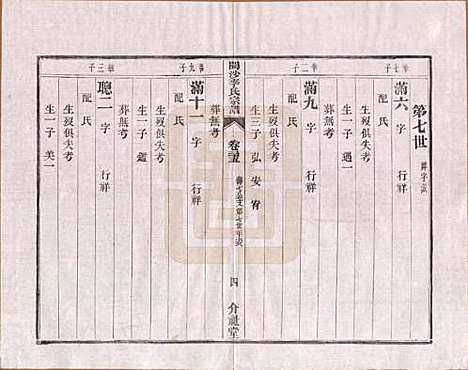 第七世
華七子
滿六 字 行祥
配氏
生歿俱失考
生一子 遇一
華二子
滿九 字 行祥
配氏
生歿俱失考 葬無考
生三子 弘 安 宥
開沙李氏宗譜
卷三
四
介祉堂
華九子
葬無考
滿十一 字 行祥
配氏
生歿俱失考
生一子 鑑
華三子
葬無考
聰二 字 行祥
配氏
生歿俱失考
生一子 美一